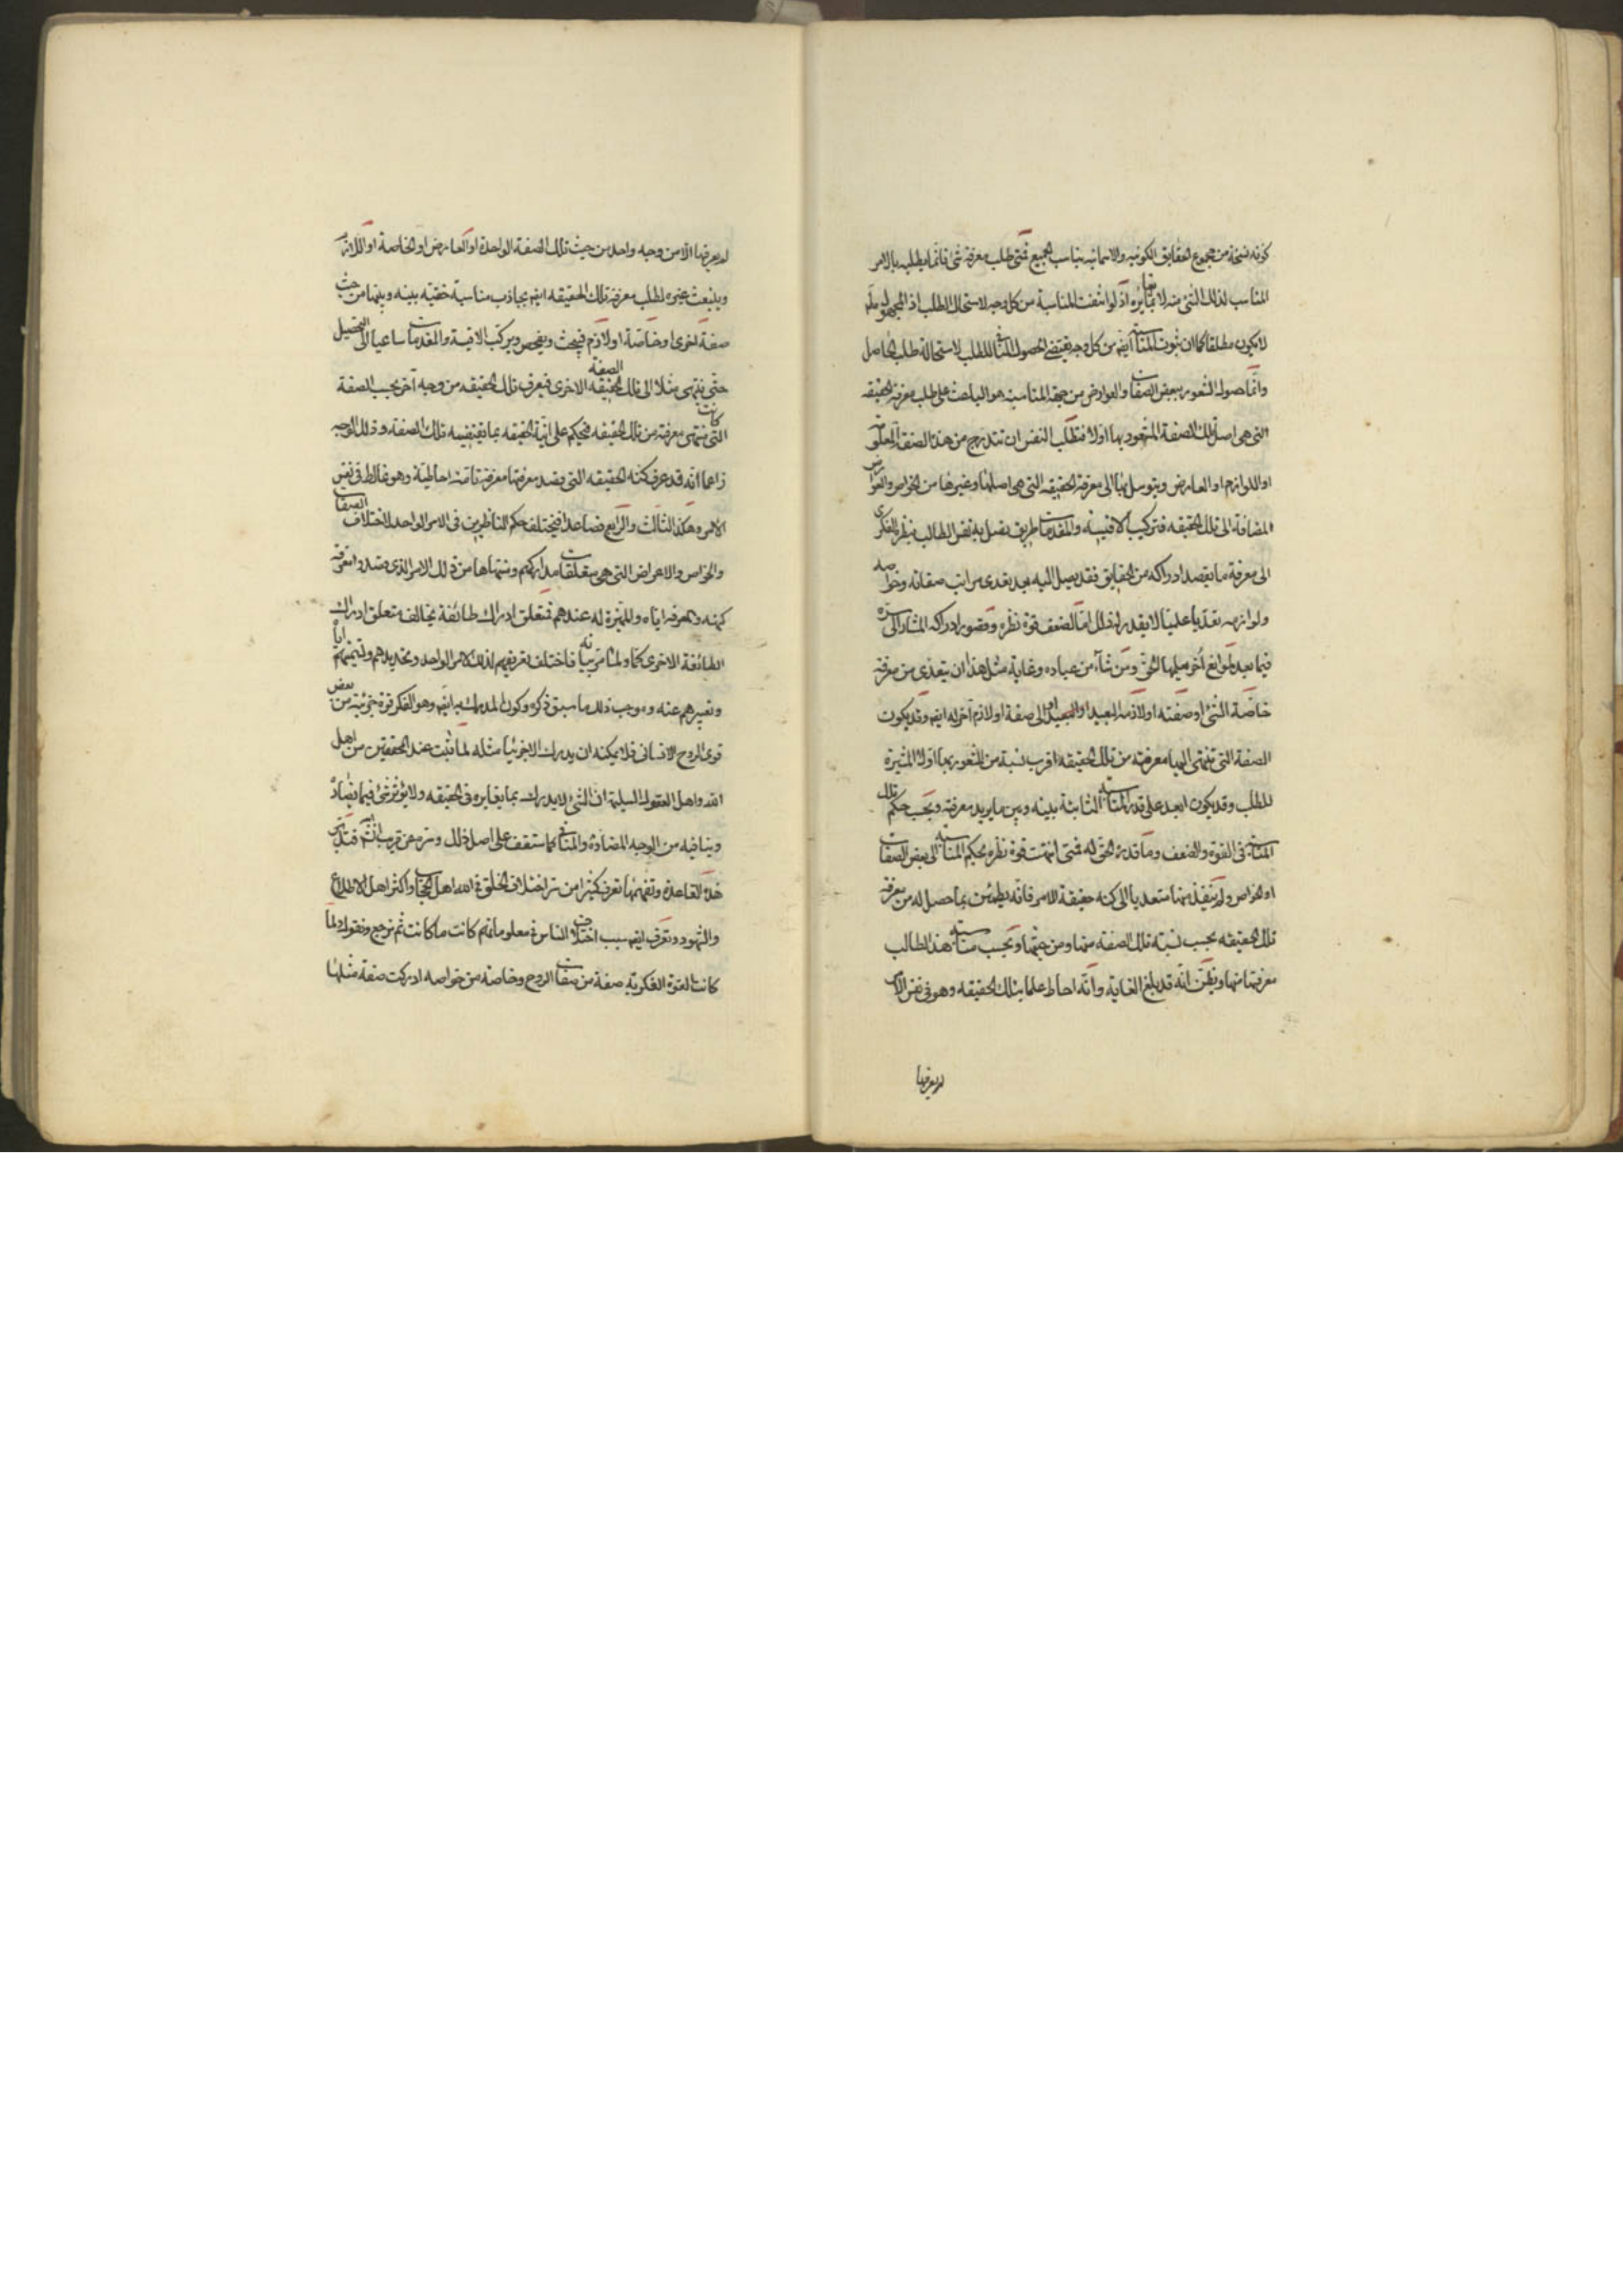 كونه نسخة من مجموع الحقايق الكونيه والاسمائيه يناسب الجميع فمتى طلب معرفة شئ فانما يطلبه بالامر
المناسب لذلك الشئ منه لا بما يغايره اذ لو انتفت المناسبة من كل وجه لاستحال الطلب اذ المجهول
لا يكون مطلقا كما ان ثبوت المناسبة ايضا من كل وجه يقتضى الحصول المنافى للطلب لاستحالة طلب الحاصل
وانما حصول الشعور ببعض الصفات والعوارض من جهة المناسبة هو الباعث على طلب معرفة الحقيقه
التى هى اصل تلك الصفة المشعور بها اولا فتطلب النفس ان تتدرج من هذه الصفة المعلومة
او اللوازم او العارض ويتوسل بها الى معرفة الحقيقه التى هى اصلها وغيرها من الخواص والعوارض
المضافة الى تلك الحقيقه فتركيب الاقيسه والمقدمات طريق يصل به نفس الطالب بنظره الفكرى
الى معرفة ما يقصد ادراكه من الحقايق فقد يصل اليه بعد تعدى مراتب صفاته وخواصه
ولوازمه تعديا علميا وقد لا يقدر له ذلك اما لضعف قوة نظره وقصور ادراكه المشار الى سره
فيما بعد او لموانع اخر يعلمها الحق ومن شاء من عباده وغاية مثل هذا ان يتعدى من معرفة
خاصة الشئ او صفته او لازمه البعيد الى صفة او لازم آخر له ايضا وقد يكون
الصفة التى تنتهى اليها معرفته من تلك الحقيقه اقرب نسبة من المشعور بها اولا المثيرة
للطلب وقد يكون ابعد على قدر المناسبة الثابتة بينه وبين ما يريد معرفته وبحسب حكم تلك
المناسبة فى القوة والضعف وما قدره الحق له فمتى انتهت قوة نظره بحكم المناسبة الى بعض الصفات
او الخواص ولم ينفذ منها متعديا الى كنه حقيقة الامر فانه يطمئن بما حصل له من معرفة
تلك الحقيقه بحسب نسبة تلك الصفة منها ومن حيثها وبحسب مناسبة هذا الطالب
معرفتها منها ويظن انه قد بلغ الغاية وانه احاط علما بتلك الحقيقه وهو فى نفس الامر
لم يعرفها
لم يعرفها الا من وجه واحد من حيث تلك الصفة الواحدة او العارض او الخاصة او اللازم
وينبعث غيره لطلب معرفة تلك الحقيقه ايضا بجاذب مناسبة خفيه بينه وبينها من حيث
صفة اخرى او خاصة او لازم فيبحث ويفحص ويركب الاقيسة والمقدمات ساعيا الى التحصيل
حتى ينتهى مثلا الى تلك الصفة الاخرى فيعرف تلك الحقيقه من وجه آخر بحسب الصفة
التى كانت منتهى معرفته من تلك الحقيقه فيحكم على انية الحقيقه بما يقتضيه تلك الصفة وذلك الوجه
زاعما انه قد عرف كنه الحقيقه التى قصد معرفتها معرفة تامة احاطية وهو غالط فى نفس
الامر وهكذا الثالث والرابع فصاعدا فيختلف حكم الناظرين فى الامر الواحد لاختلاف الصفات
والخواص والاعراض التى هى متعلقات مداركهم ومنتهاها من ذلك الامر الذى قصدوا معرفة
كنهه والمعرفه اياه والمميزة له عندهم فمتعلق ادراك طائفة يخالف متعلق ادراك
الطائفة الاخرى كما ولما مر بيانه فاختلف تعريفهم لذلك الامر الواحد وتحديدهم له وتسميتهم اياه
وتعبيرهم عنه وموجب ذلك ما سبق ذكره وكون المدرك به ايضا وهو الفكر قوة جزئية من بعض
قوى الروح الانسانى فلا يمكنه ان يدرك الا جزئيا مثله لما ثبت عند المحققين من اهل
الله واهل العقول السليمة ان الشئ لا يدرك بما يغايره فى الحقيقه ولا يؤثر شئ فيما يضاده
وينافيه من الوجه المضاد والمنافى كما ستقف على اصل ذلك وسره عن قريب ان شاء الله فتدبر
هذه القاعدة وتفهمها تعرف كثيرا من سر اختلاف الخلق فى الله اهل الحجاب واكثر اهل الاطلاع
والشهود وتعرف ايضا سبب اختلاف الناس فى معلوماتهم كانت ما كانت ثم نرجع ونقول ولما
كانت القوة الفكرية صفة من صفات الروح وخاصة من خواصه ادركت صفة مثلها